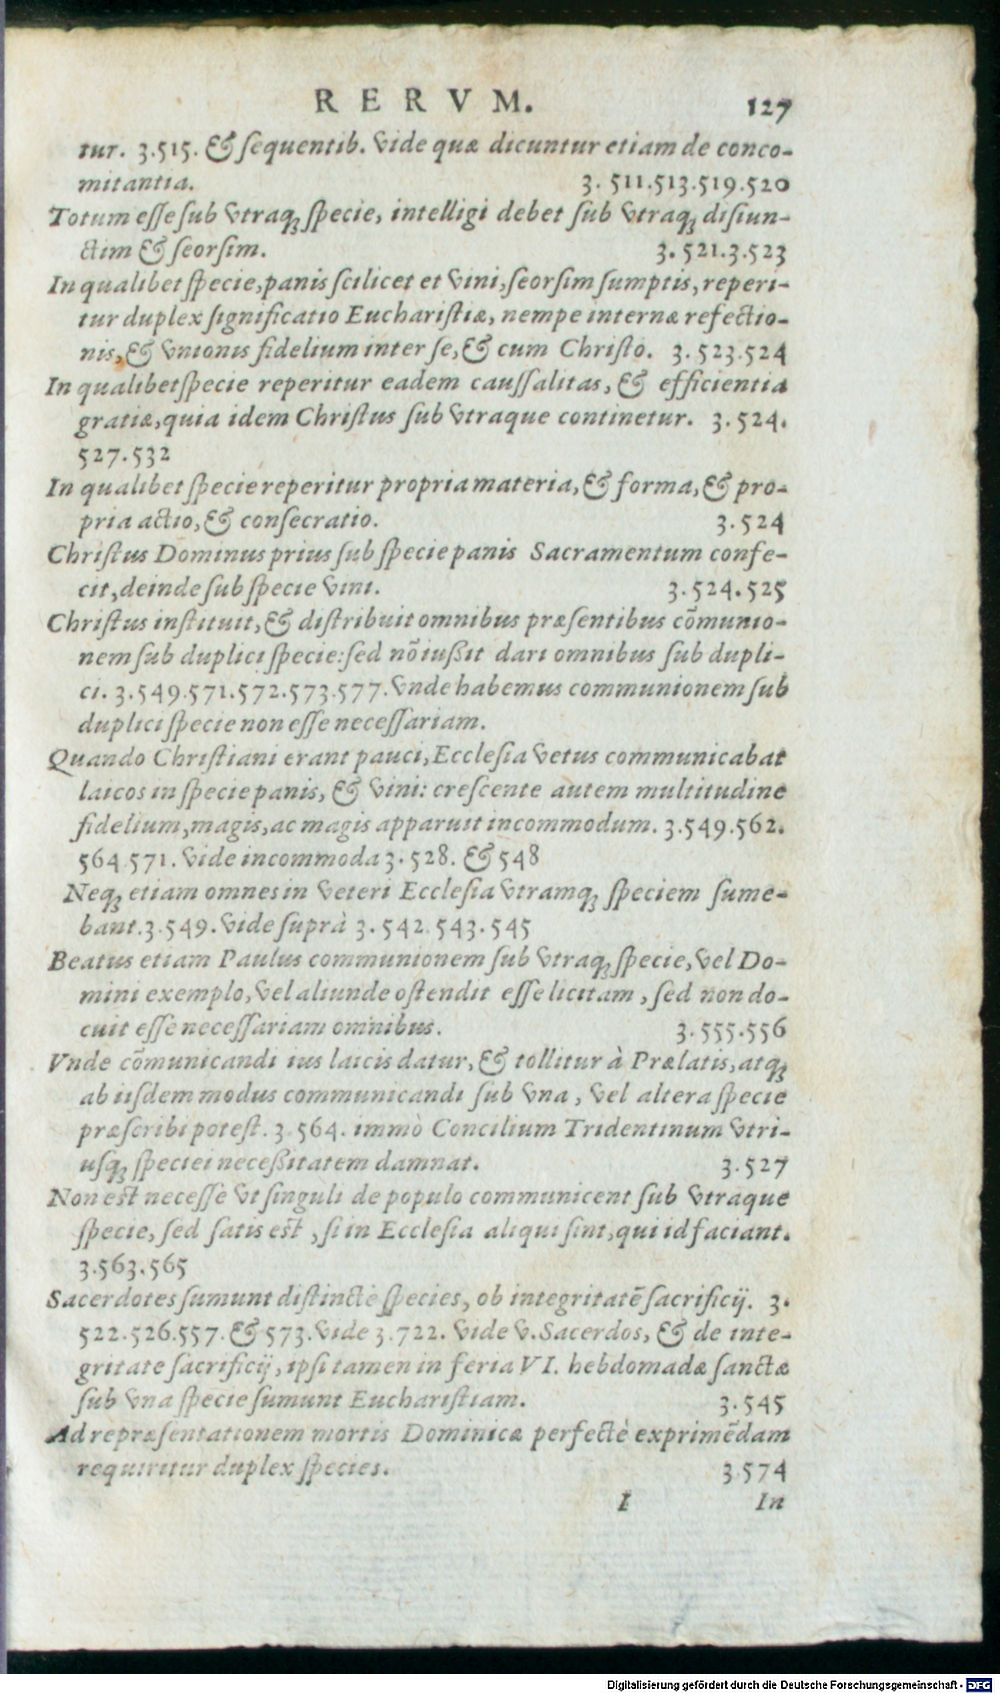 RERVM. 127
tur. 3.515. & sequentib. Vide quæ dicuntur etiam de conco-
mitantia. 3. 511.513.519.520
Totum esse sub vtraq; specie, intelligi debet sub vtraq; disiun-
ctim & seorsim. 3. 521.3.523
In qualibet specie, panis scilicet et vini, seorsim sumptis, reperi-
tur duplex significatio Eucharistiæ, nempe internæ refectio-
nis, & vnionis fidelium inter se, & cum Christo. 3. 523.524
In qualibet specie reperitur eadem caussalitas, & efficientia
gratiæ, quia idem Christus sub vtraque continetur. 3. 524.
527.532
In qualibet specie reperitur propria materia, & forma, & pro-
pria actio, & consecratio. 3.524
Christus Dominus prius sub specie panis Sacramentum confe-
cit, deinde sub specie vini. 3.524.525
Christus instituit, & distribuit omnibus præsentibus cõmunio-
nem sub duplici specie: sed nõ iußit dari omnibus sub dupli-
ci. 3.549.571.572.573.577. Vnde habemus communionem sub
duplici specie non esse necessariam.
Quando Christiani erant pauci, Ecclesia vetus communicabat
laicos in specie panis, & vini: crescente autem multitudine
fidelium, magis, ac magis apparuit incommodum. 3.549.562.
564.571. Vide incommoda 3.528. & 548
Neq; etiam omnes in veteri Ecclesia vtramq; speciem sume-
bant. 3.549. vide suprà 3.542.543.545
Beatus etiam Paulus communionem sub vtraq; specie, vel Do-
mini exemplo, vel aliunde ostendit esse licitam, sed non do-
cuit esse necessariam omnibus. 3.555.556
Vnde cõmunicandi ius laicis datur, & tollitur à Prælatis, atq;
ab iisdem modus communicandi sub vna, vel altera specie
præscribi potest. 3.564. immò Concilium Tridentinum vtri-
usq; speciei neceßitatem damnat. 3.527
Non est necesse vt singuli de populo communicent sub vtraque
specie, sed satis est, si in Ecclesia aliqui sint, qui id faciant.
3.563.565
Sacerdotes sumunt distinctè species, ob integritatẽ sacrificij. 3.
522.526.557. & 573. Vide 3.722. Vide v. Sacerdos, & de inte-
gritate sacrificij, ipsi tamen in feria VI. hebdomadæ sanctæ
sub vna specie sumunt Eucharistiam. 3.545
Ad repræsentationem mortis Dominicæ perfectè exprimẽdam
requiritur duplex species. 3.574
I In
Digitalisierung gefördert durch die Deutsche Forschungsgemeinschaft - DFG